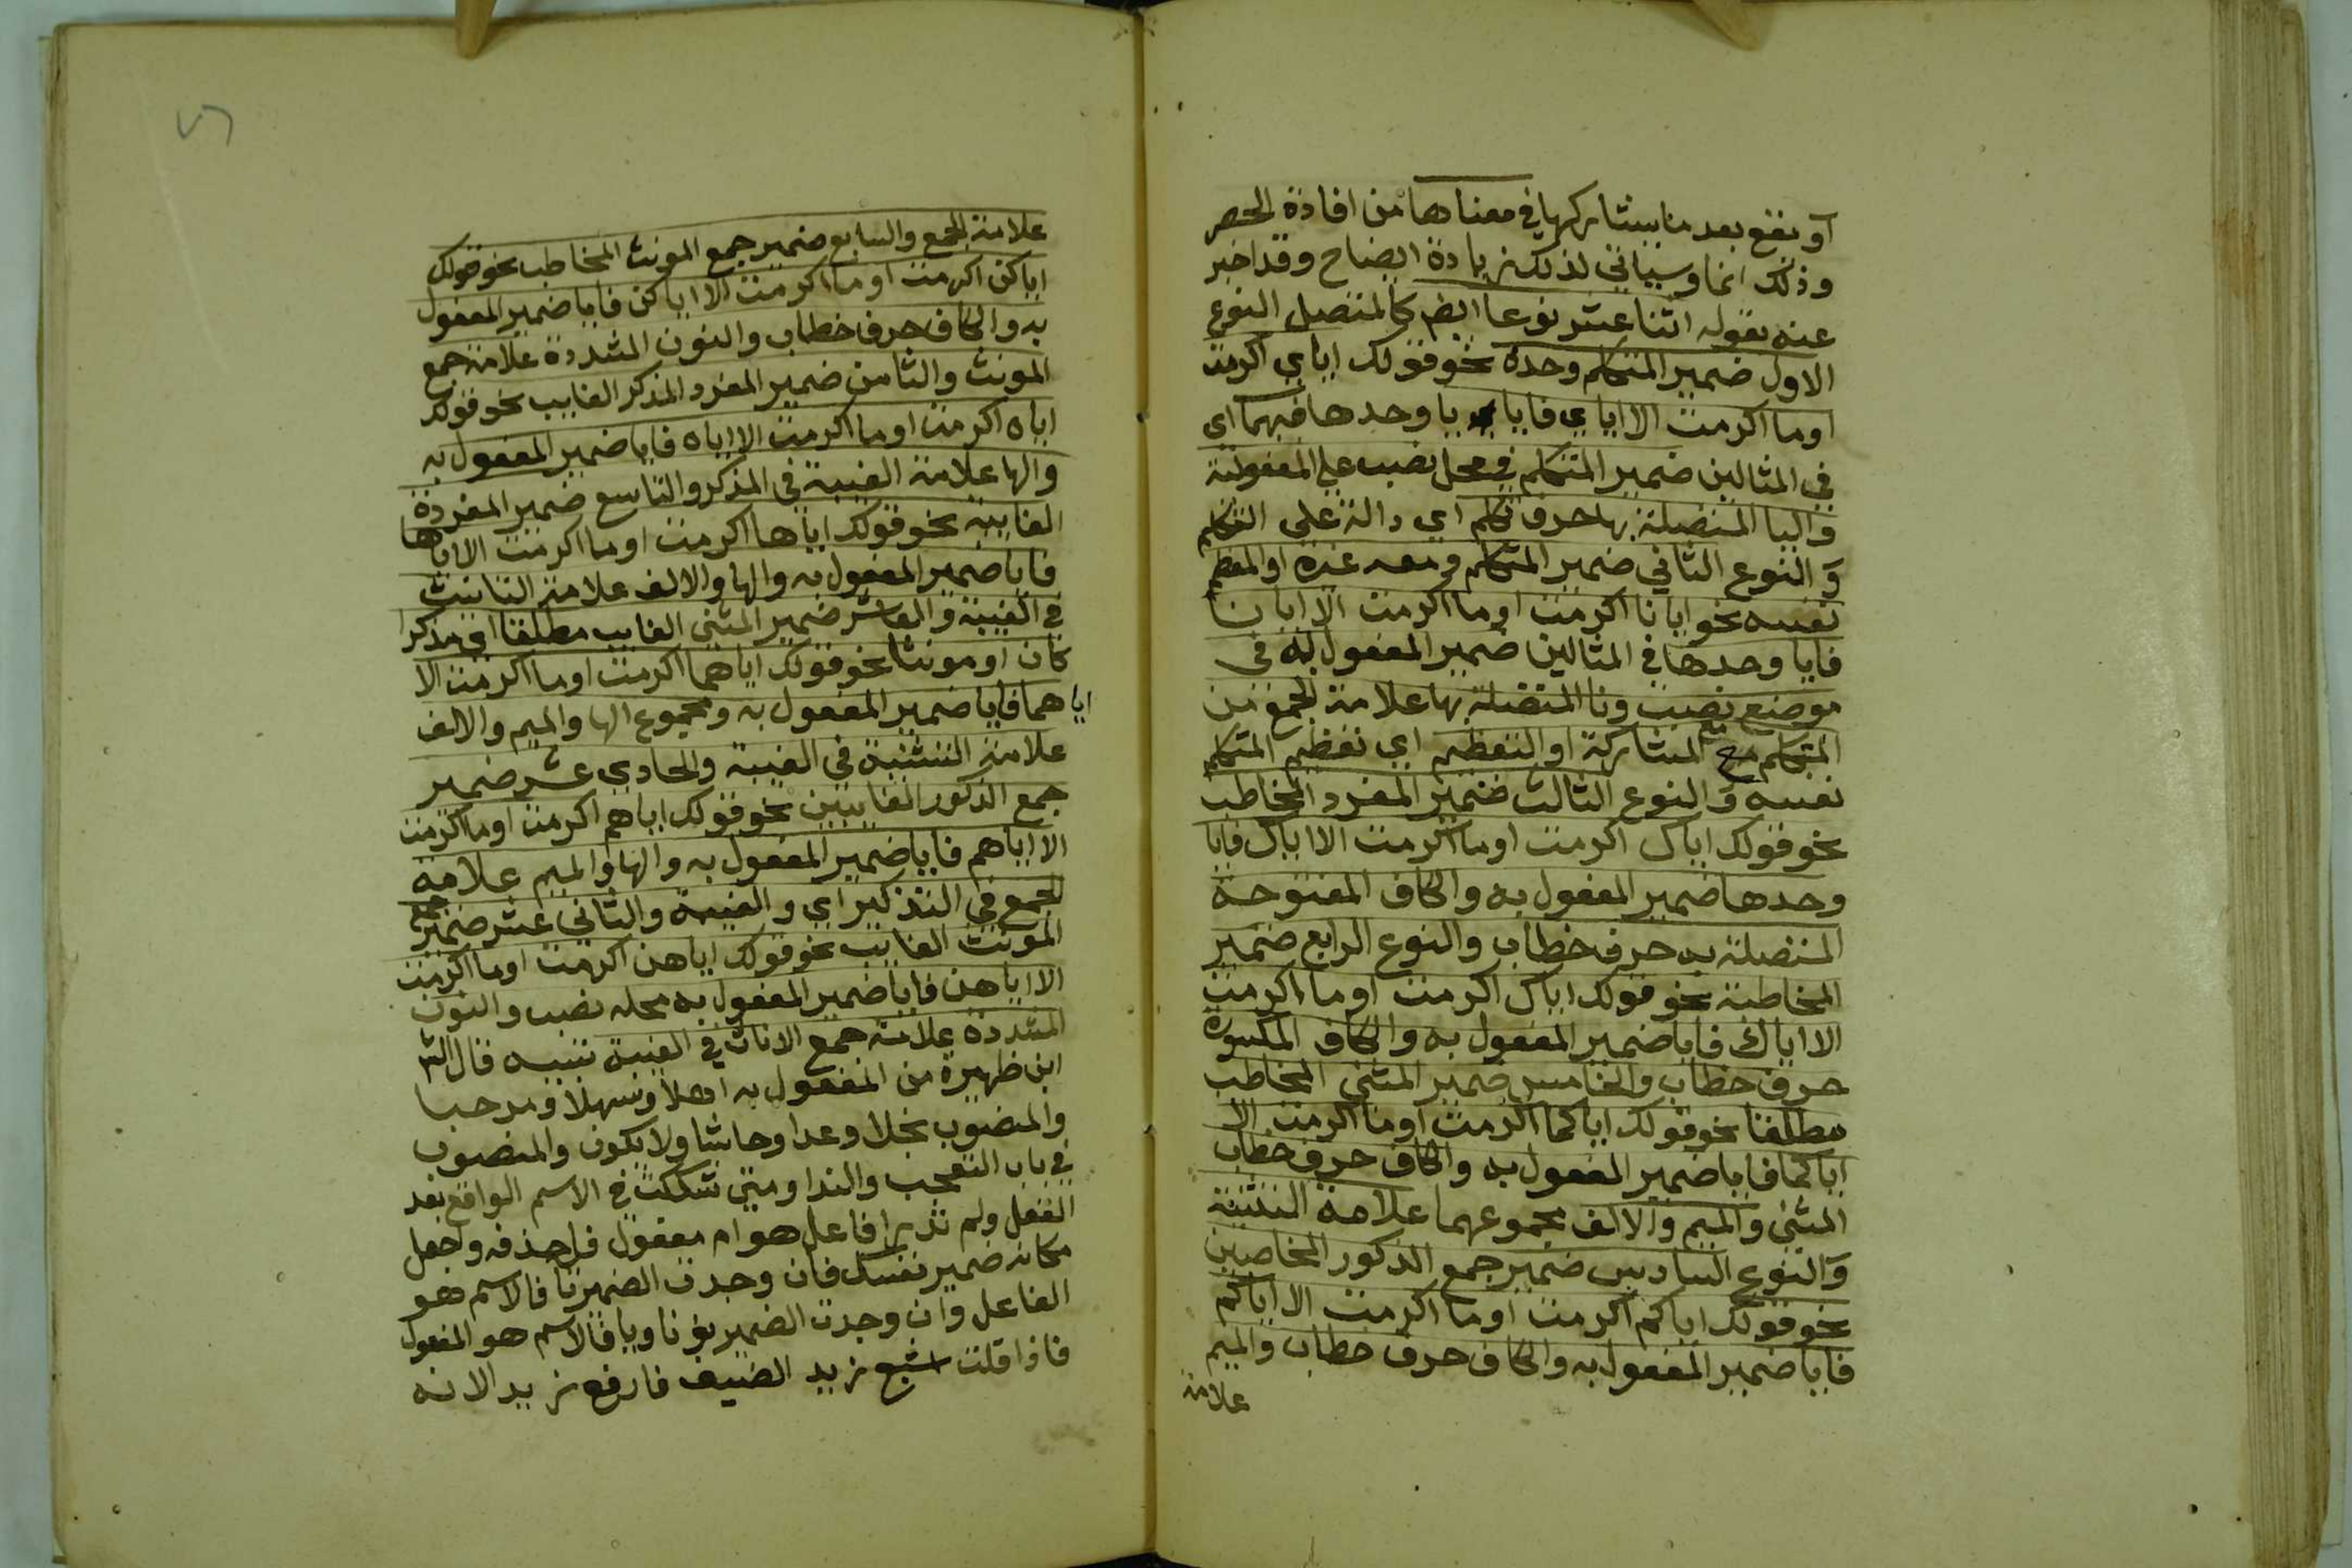 او يقع بعد ما يشاركها في معناها من افادة الحصر
وذلك انما وسياتي لذلك زيادة ايضاح وقد اخبر
عنه بقوله اثنا عشر نوعا ايضا كالمتصل النوع
الاول ضمير المتكلم وحده نحو قولك اياي اكرمت
او ما اكرمت الا اياي فايا يا وحدها فيهما اي
في المثالين ضمير المتكلم في محل نصب على المفعولية
واليا المتصلة بها حرف تكلم اي دالة على التكلم
والنوع الثاني ضمير المتكلم ومعه غيره او المعظم
نفسه نحو ايانا اكرمت او ما اكرمت الا ايانا
فايا وحدها في المثالين ضمير المفعول به في
موضع نصب ونا المتصلة بها علامة الجمع من
المتكلم مع المشاركة او التعظيم اي تعظيم المتكلم
نفسه والنوع الثالث ضمير المفرد المخاطب
نحو قولك اياك اكرمت او ما اكرمت الا اياك فايا
وحدها ضمير المفعول به والكاف المفتوحة
المتصلة به حرف خطاب والنوع الرابع ضمير
المخاطبة نحو قولك اياك اكرمت او ما اكرمت
الا اياك فايا ضمير المفعول به والكاف المكسورة
حرف خطاب والخامس ضمير المثنى المخاطب
مطلقا نحو قولك اياكما اكرمت او ما اكرمت الا
اياكما فايا ضمير المفعول به والكاف حرف خطاب
المثنى والميم والالف مجموعهما علامة التثنية
والنوع السادس ضمير جمع الذكور المخاصبين
نحو قولك اياكم اكرمت او ما اكرمت الا اياكم
فايا ضمير المفعول به والكاف حرف خطاب والميم
علامة
علامة الجمع والسابع ضمير جمع المونث المخاطب نحو قولك
اياكن اكرمت او ما اكرمت الا اياكن فايا ضمير المفعول
به والكاف حرف خطاب والنون المشددة علامة جمع
المونث والثامن ضمير المفرد المذكر الغايب نحو قولك
اياه اكرمت او ما اكرمت الا اياه فايا ضمير المفعول به
والها علامة الغيبة في المذكر والتاسع ضمير المفردة
الغايبة نحو قولك اياها اكرمت او ما اكرمت الا اياها
فايا ضمير المفعول به والها والالف علامة التانيث
في الغيبة والعاشر ضمير المثنى الغايب مطلقا اي مذكرا
كان او مونثا نحو قولك اياهما اكرمت او ما اكرمت الا
اياهما فايا ضمير المفعول به ومجموع الها والميم والالف
علامة التثنية في الغيبة والحادي عشر ضمير
جمع الذكور الغايبين نحو قولك اياهم اكرمت او ما اكرمت
الا اياهم فايا ضمير المفعول به والها والميم علامة
الجمع في التذكير اي والغيبة والثاني عشر ضمير جمع
المونث الغايب نحو قولك اياهن اكرمت او ما اكرمت
الا اياهن فايا ضمير المفعول به محله نصب والنون
المشددة علامة جمع الاناث في الغيبة تنبيه قال
ابن ظهيرة من المفعول به اهلا وسهلا ومرحبا
والمنصوب بخلا وعدا وحاشا ولا يكون والمنصوب
في باب التعجب والندا ومتى تشككت في الاسم الواقع بعد
الفعل ولم تدر افاعل هو ام مفعول فاحذفه واجعل
مكانه ضمير نفسك فان وجدت الضمير تا فالاسم هو
الفاعل وان وجدت الضمير نونا ويا فالاسم هو المفعول
فاذا قلت اشبع زيد الضيف فارفع زيد الانه